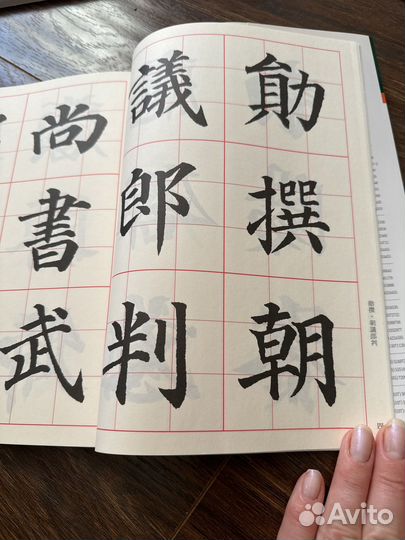 勛撰朝
議郎判
尚書武
勛撰·朝議郎判
Avito